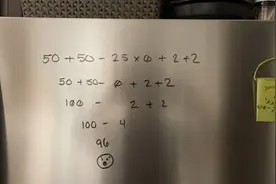 50 + 50 - 25 x 0 + 2 + 2
50 + 50 - 0 + 2 + 2
100 - 2 + 2
100 - 4
96